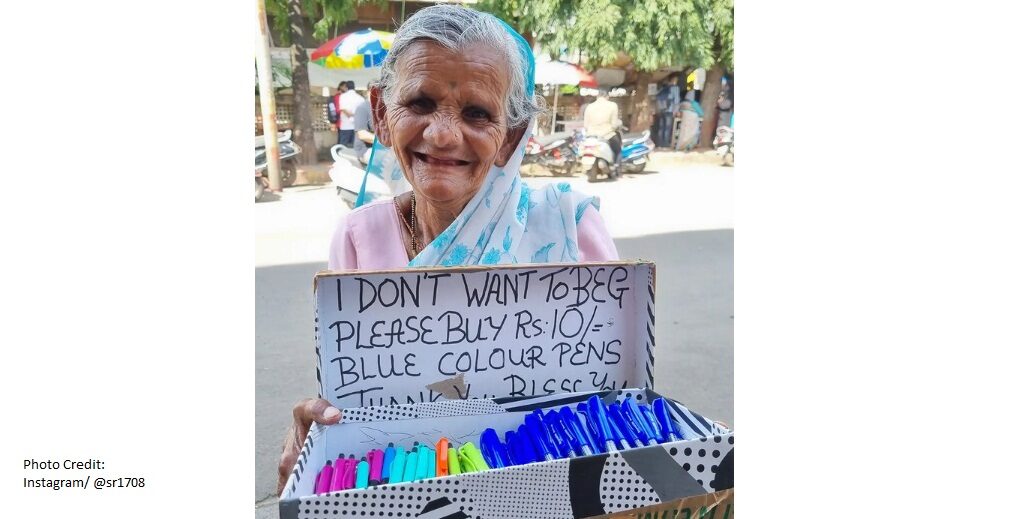 I DON'T WANT TO BEG
PLEASE BUY Rs: 10/=
BLUE COLOUR PENS
THANK YOU BLESS YOU
Photo Credit:
Instagram/ @sr1708